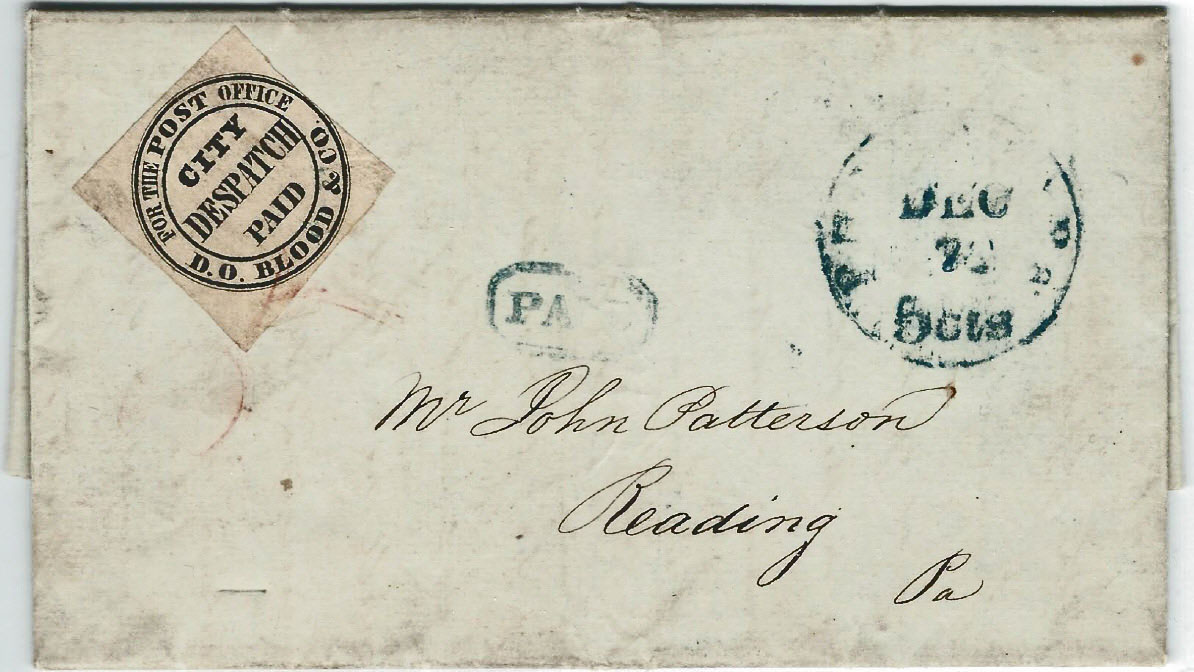 FOR THE POST OFFICE
CITY
DESPATCH
PAID
D.O. BLOOD & CO.
DEC
5cts
Mr John Patterson
Reading
Pa